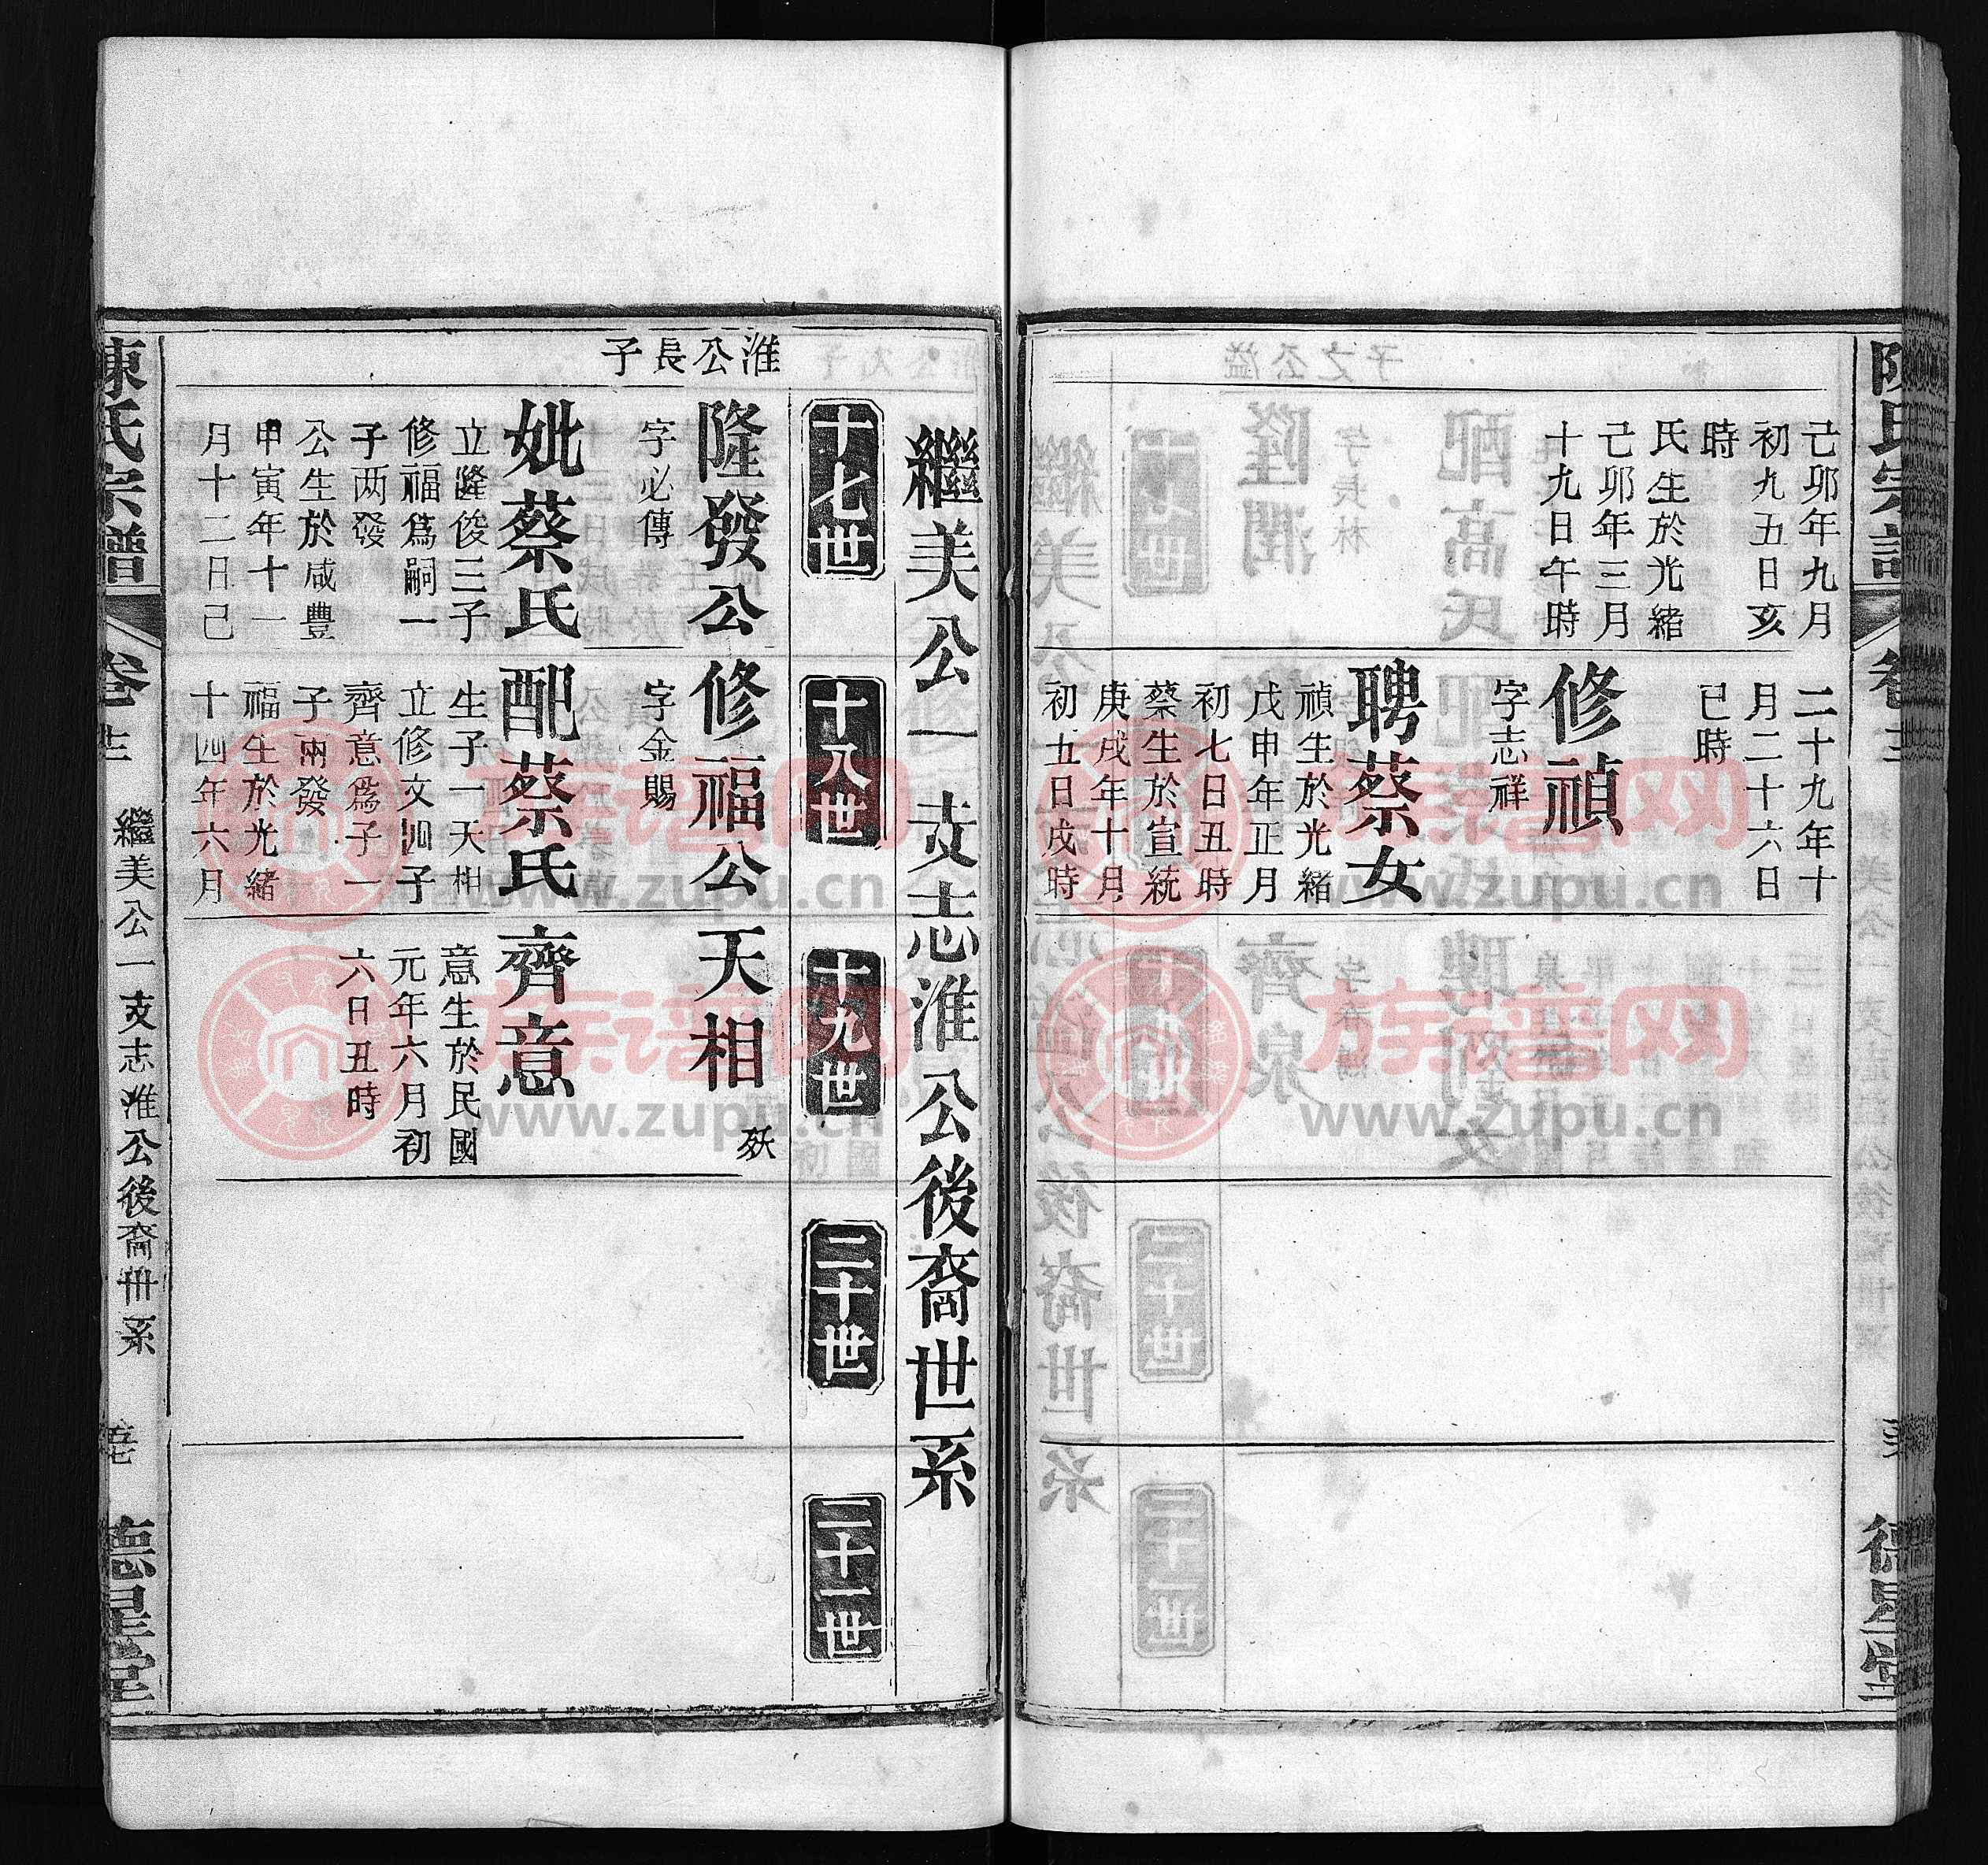 己卯年九月
初九五日亥
時
氏生於光緒
己卯年三月
十九日午時
二十九年十
月二十六日
巳時
修禎
字志祥
聘蔡女
禎生於光緒
戊申年正月
初七日丑時
蔡生於宣統
庚戌年十月
初五日戌時
德星堂
繼美公一支志淮公後裔世系
十七世
十八世
十九世
二十世
二十一世
淮公長子
隆發公
字必傳
妣蔡氏
立隆俊三子
修福爲嗣一
子两發
公生於咸豐
甲寅年十一
月十二日己
修福公
字金賜
配蔡氏
生子一天相
立修文四子
齊意爲子一
子兩發
福生於光緒
十四年六月
天相
殀
齊意
意生於民國
元年六月初
六日丑時
陳氏宗譜
繼美公一支志淮公後裔世系
德星堂
族谱网
www.zupu.cn
族谱网
www.zupu.cn
族谱网
www.zupu.cn
族谱网
www.zupu.cn